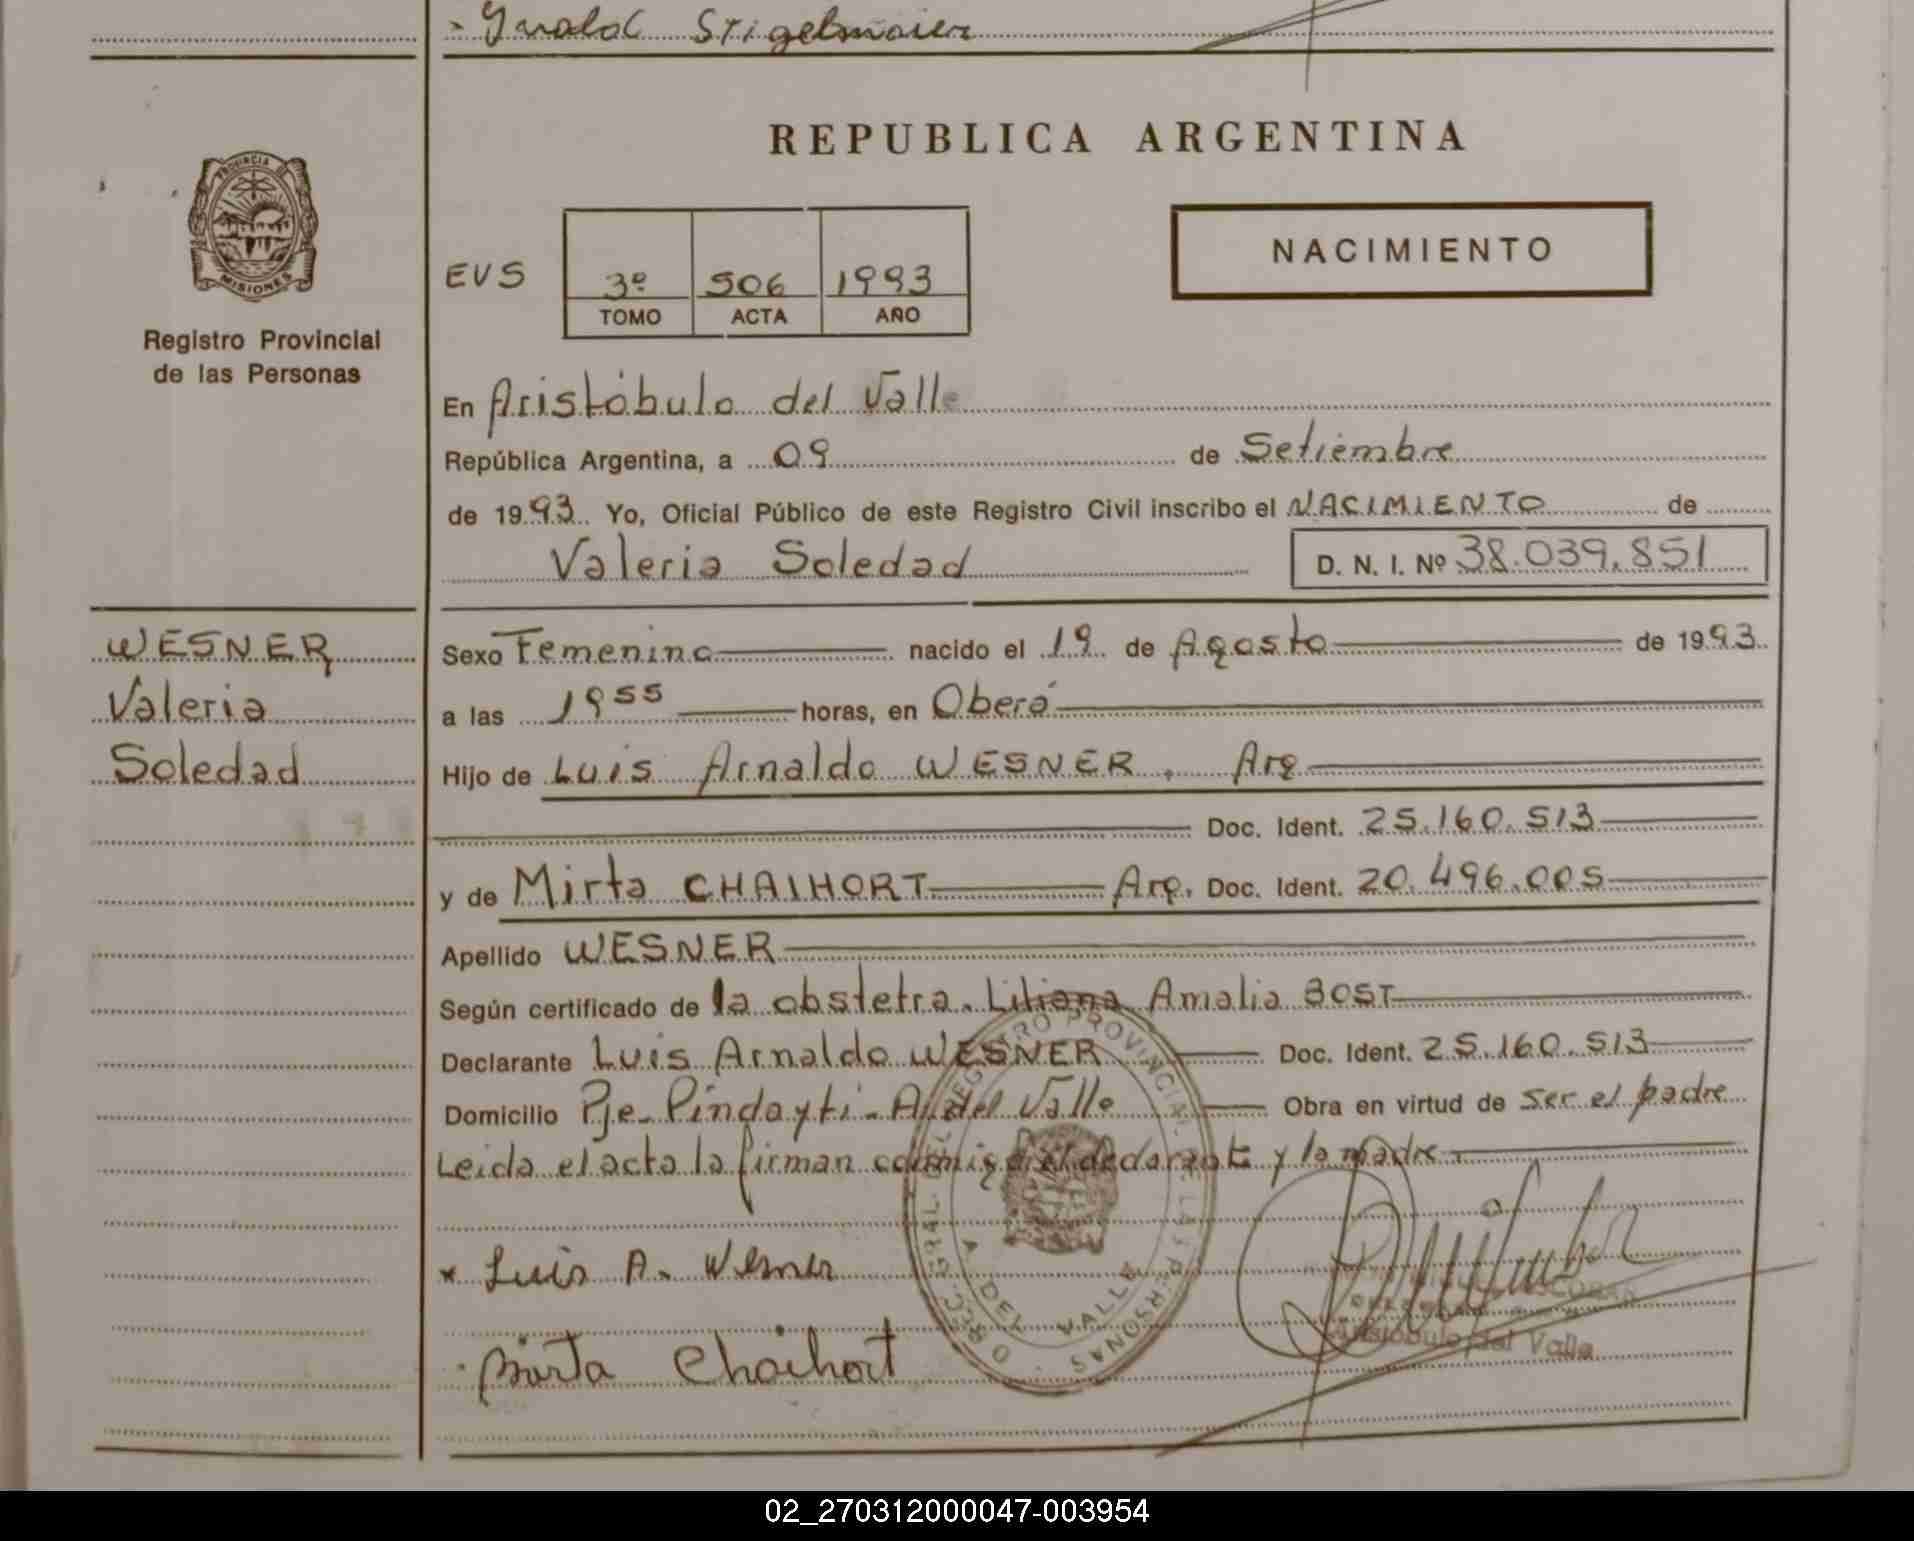 Stigelmaier
REPUBLICA ARGENTINA
PROVINCIA DE
MISIONES
Registro Provincial
de las Personas
EVS
3º 506 1993
TOMO ACTA AÑO
NACIMIENTO
En Aristóbulo del Valle
República Argentina, a 09 de Setiembre
de 1993. Yo, Oficial Público de este Registro Civil inscribo el NACIMIENTO de
Valeria Soledad D. N. I. Nº 38.039.851
WESNER
Valeria
Soledad
Sexo Femenino nacido el 19 de Agosto de 1993
a las 19 55 horas, en Oberá
Hijo de Luis Arnaldo WESNER. Arg
Doc. Ident. 25.160.513
y de Mirta CHAIHORT Arg. Doc. Ident. 20.496.005
Apellido WESNER
Según certificado de la obstetra. Liliana Amalia BOST
Declarante Luis Arnaldo WESNER Doc. Ident. 25.160.513
Domicilio Pje_Pindayti_A. del Valle Obra en virtud de ser el padre
Leida el acta la firman conmigo el declarante y la madre.
Luis A. Wesner
Mirta Chaihort
REGISTRO PROVINCIAL DE LAS PERSONAS
A. DEL VALLE
ESCOBAR
Aristóbulo del Valle
02_270312000047-003954